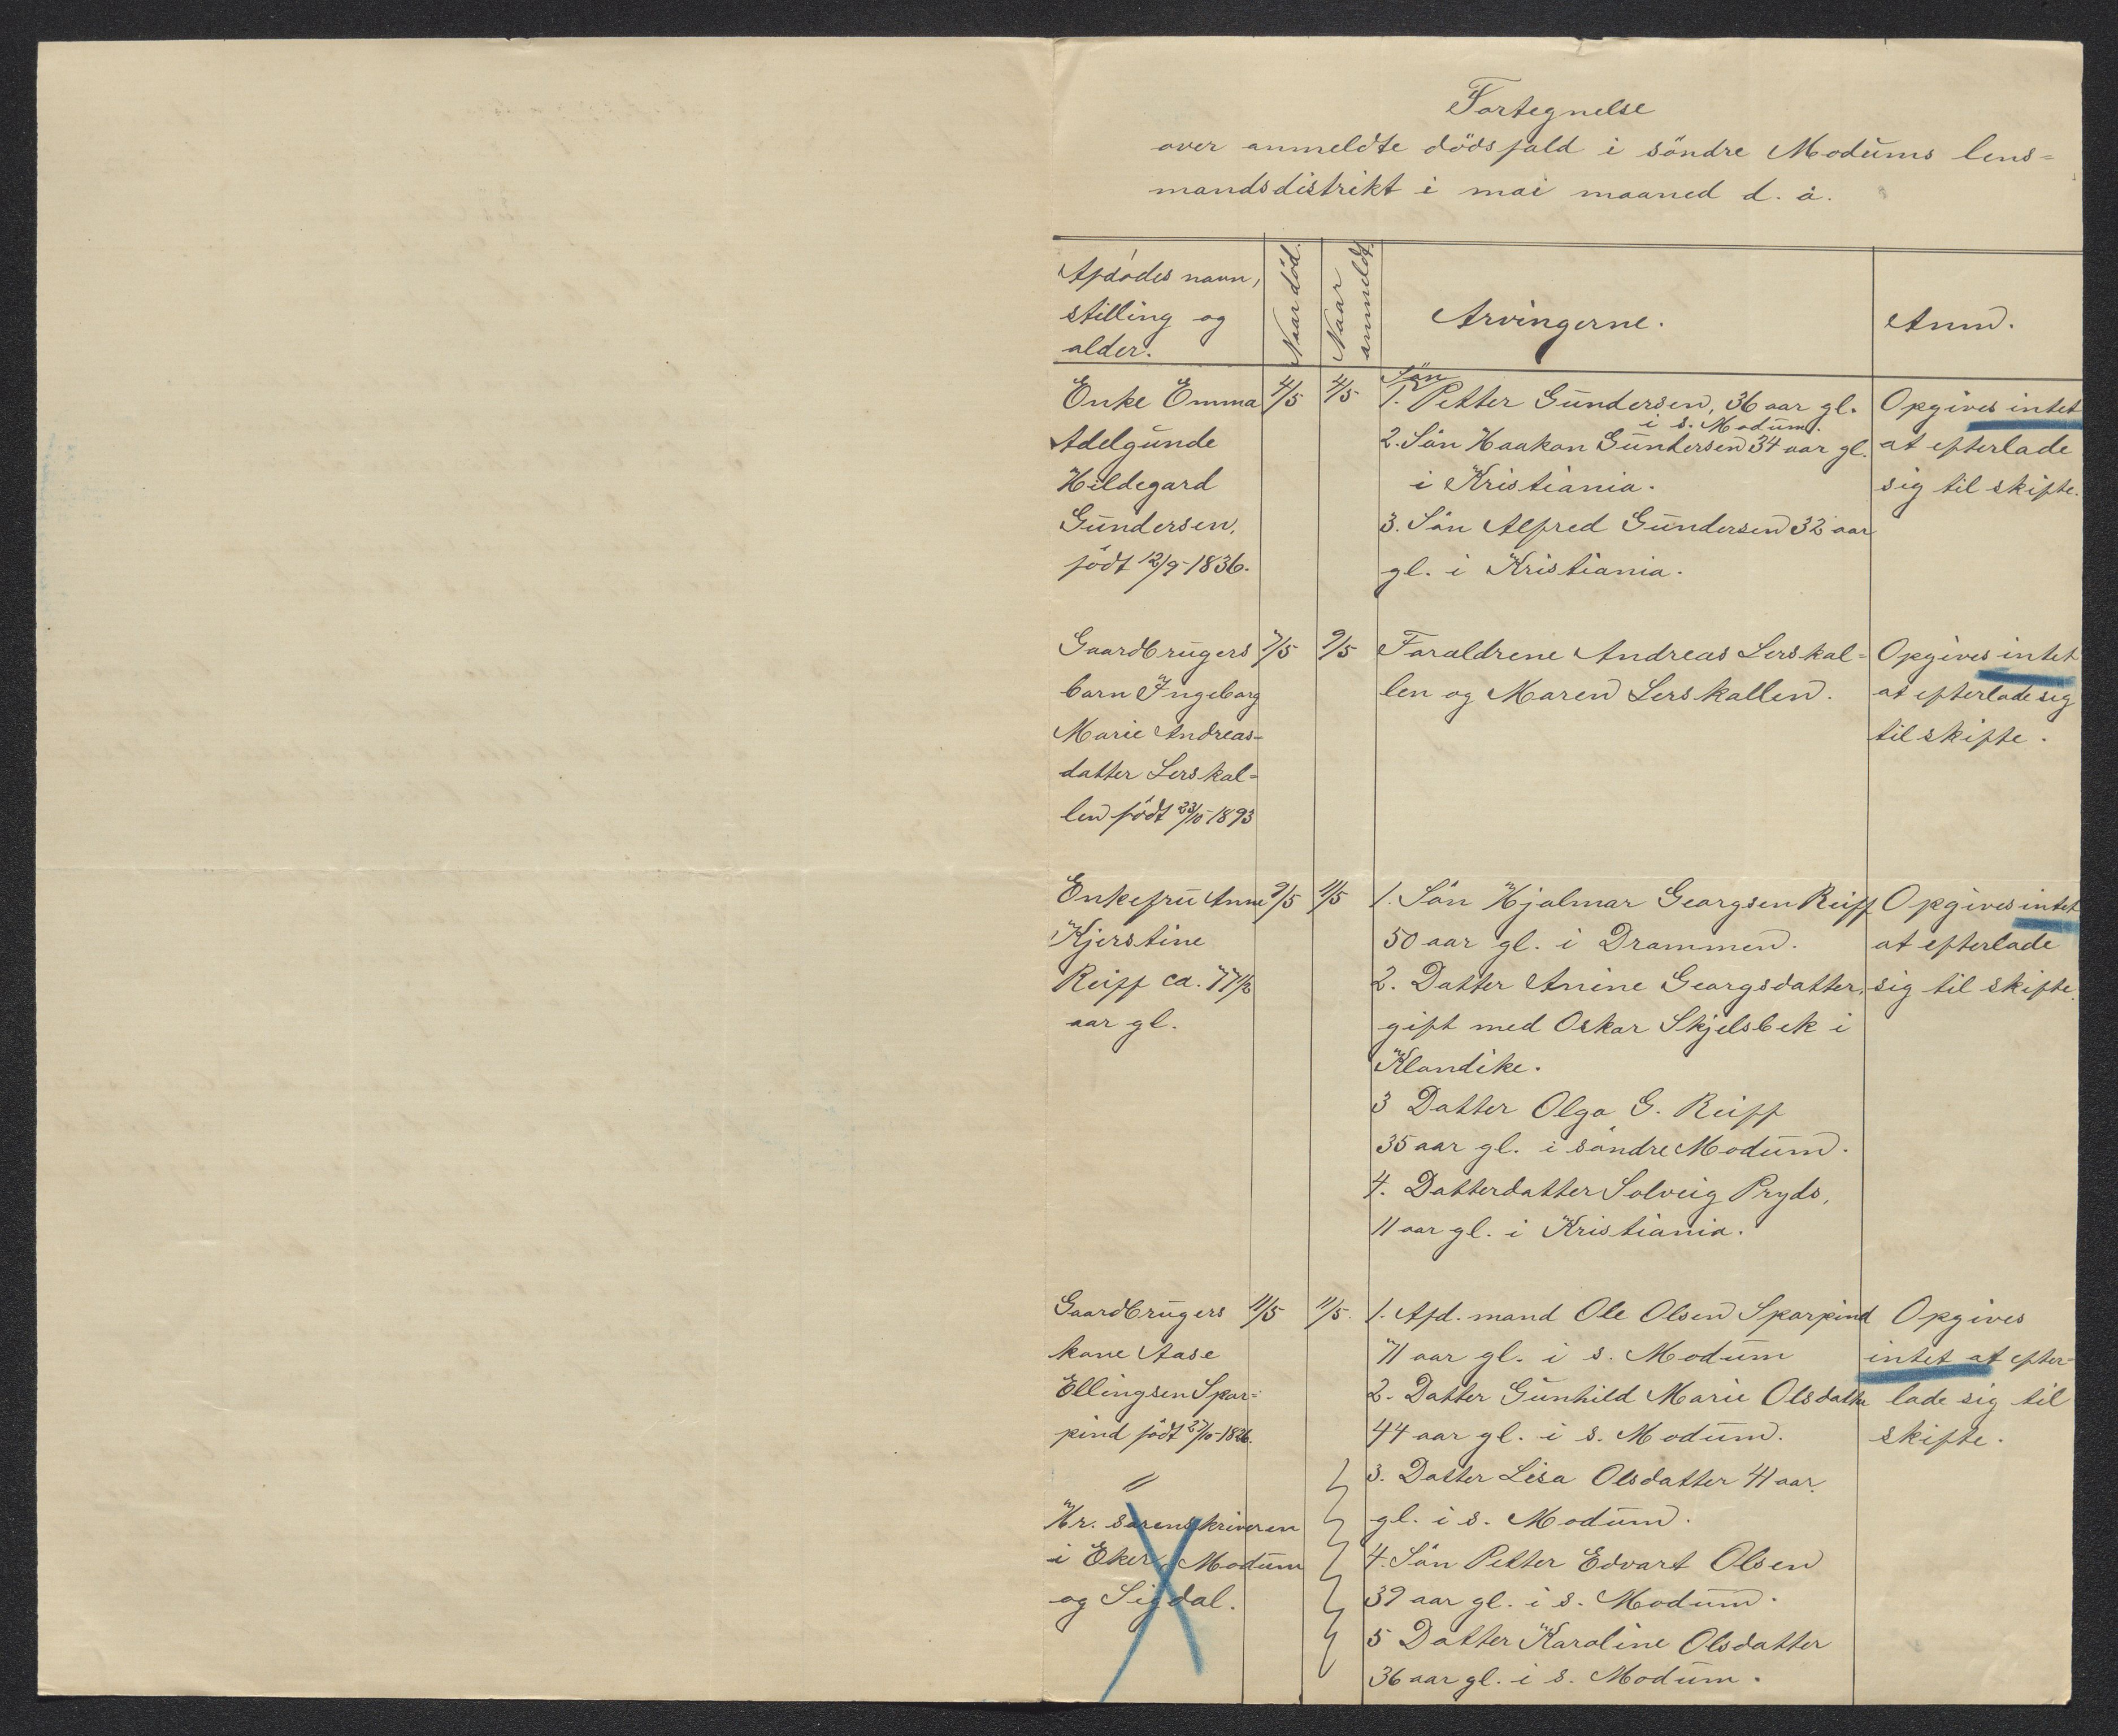 Fortegnelse
over anmeldte dödsfald i söndre Modums lens=
mandsdistrikt i mai maaned d. å.
Afdödes navn,
stilling og
alder.
Naar död.
Naar
anmeldt.
Arvingerne.
Anm.
Enke Emma
Adelgunde
Hildegard
Gundersen,
födt 12/9-1836.
4/5
4/5
Sön
1. Petter Gundersen, 36 aar gl.
i s. Modum.
2. Sön Haakon Gundersen 34 aar gl.
i Kristiania.
3. Sön Alfred Gundersen 32 aar
gl. i Kristiania.
Opgives intet
at efterlade
sig til skifte.
Gaardbrugers
barn Ingeborg
Marie Andreas-
datter Lerskal=
len födt 23/10-1893
7/5
9/5
Forældrene Andreas Lerskal=
len og Maren Lerskallen.
Opgives intet
at efterlade sig
til skifte.
Enkefru Anne
Kjerstine
Reiff ca. 77½
aar gl.
9/5
11/5
1. Sön Hjalmar Georgsen Reiff
50 aar gl. i Drammen.
2. Datter Anine Georgsdatter,
gift med Oskar Skjelsbek i
Klondike.
3 Datter Olga G. Reiff
35 aar gl. i söndre Modum.
4. Datterdatter Solveig Pryds,
11 aar gl. i Kristiania.
Opgives intet
at efterlade
sig til skifte.
Gaardbrugers
kone Aase
Ellingsen Spar=
pind födt 27/10-1826.
11/5
11/5.
1. Afd. mand Ole Olsen Sparpind
71 aar gl. i s. Modum
2. Datter Gunhild Marie Olsdatter
44 aar gl. i s. Modum.
3. Datter Lisa Olsdatter 41 aar
gl. i s. Modum.
4. Sön Petter Edvart Olsen
39 aar gl. i s. Modum.
5 Datter Karoline Olsdatter
36 aar gl. i s. Modum.
Opgives
intet at efter-
lade sig til
skifte.
Hr. sorenskriveren
i Eker, Modum
og Sigdal.